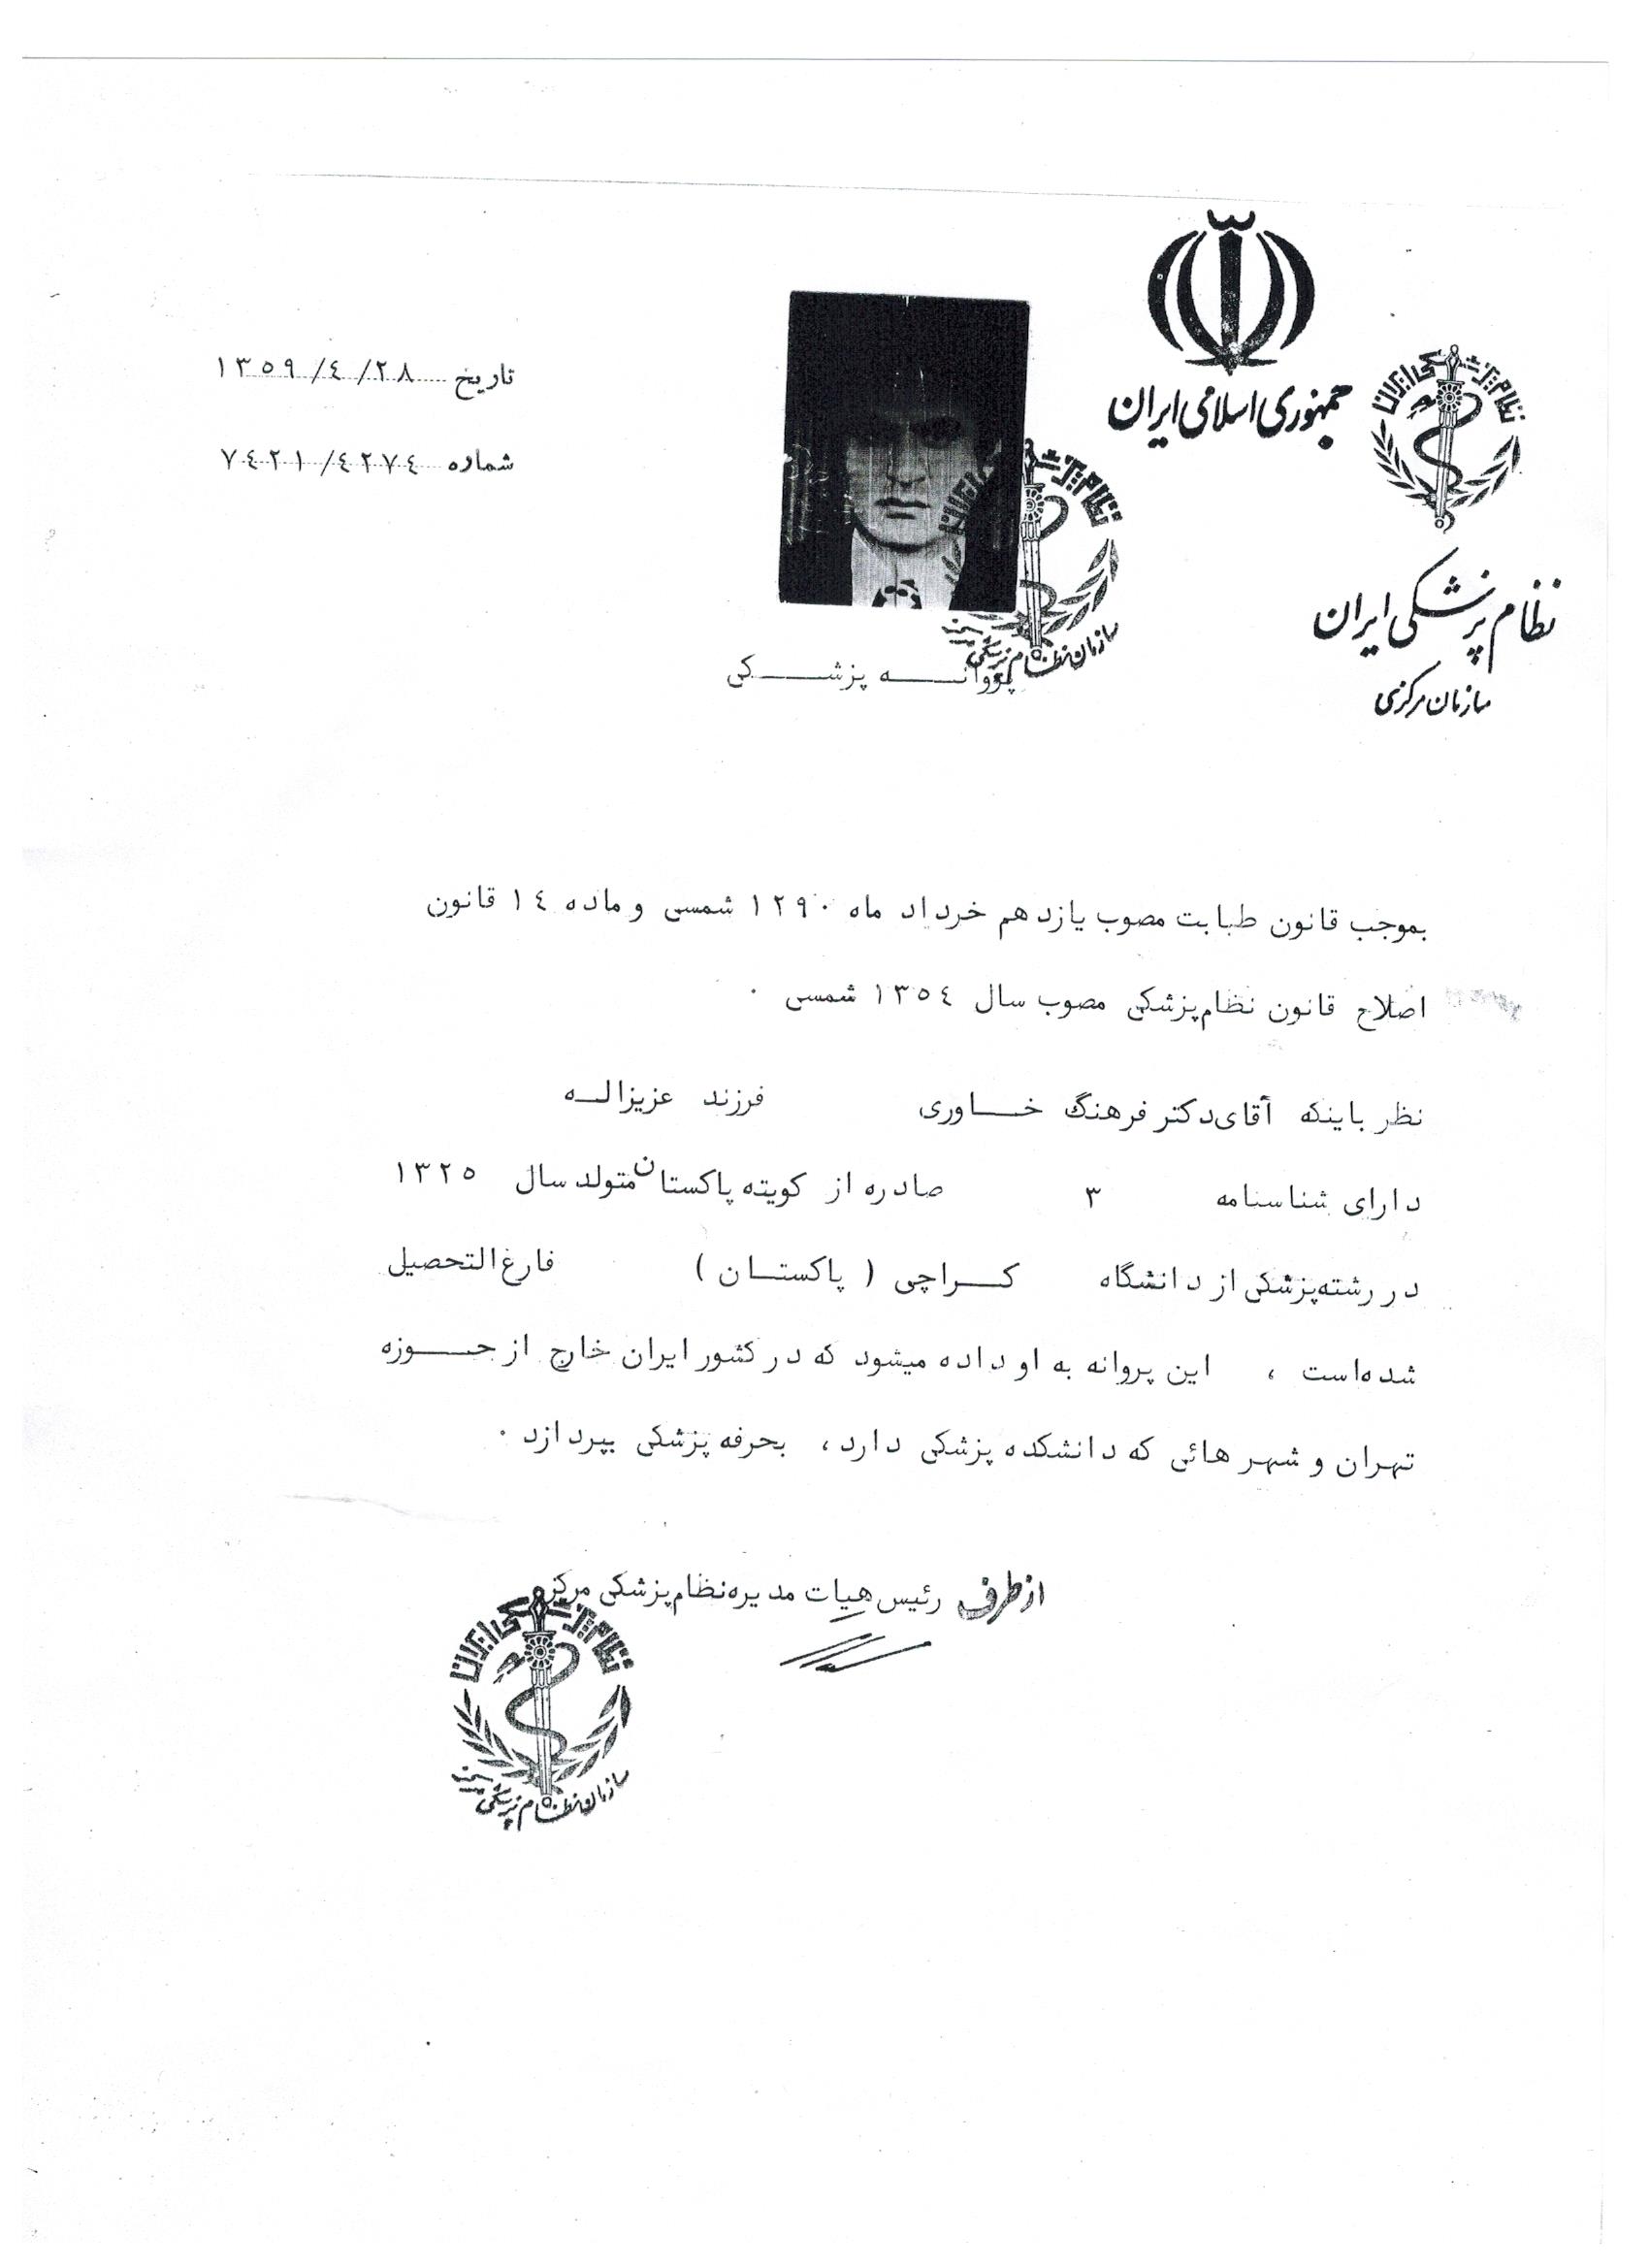 جمهوری اسلامی ایران
نظام پزشکی ایران
نظام پزشکی ایران
سازمان مرکزی
تاریخ ۱۳۵۹/٤/۲۸
شماره ۷٤۲۱/٤۲۷٤
نظام پزشکی ایران
سازمان نظام پزشکی مرکز
پروانـــه پزشـــکی
بموجب قانون طبابت مصوب یازدهم خرداد ماه ۱۲۹۰ شمسی و ماده ۱٤ قانون
اصلاح قانون نظام پزشکی مصوب سال ۱۳۵٤ شمسی ۰
نظر باینکه آقای دکتر فرهنگ خـــاوری فرزند عزیزالــه
دارای شناسنامه ۳ صادره از کویته پاکستان متولد سال ۱۳۲۵
در رشته پزشکی از دانشگاه کـــراچی ( پاکستــان ) فارغ التحصیل
شده است ، این پروانه به او داده میشود که در کشور ایران خارج از حـــوزه
تهران و شهر هائی که دانشکده پزشکی دارد، بحرفه پزشکی بپردازد ۰
از طرف رئیس هیات مدیره نظام پزشکی مرکز
نظام پزشکی ایران
سازمان نظام پزشکی مرکز